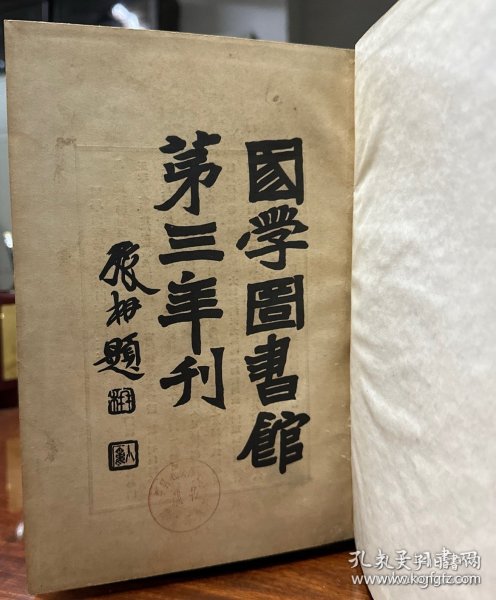 国学圖書館
第三年刊
張相題
孔夫子旧书网
www.kongfz.com